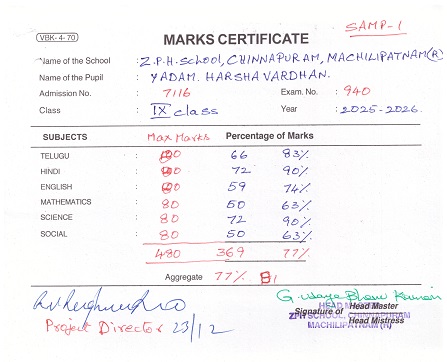 SAMP-1
VBK-4-70
MARKS CERTIFICATE
Name of the School : Z.P.H. School, CHINNAPURAM, MACHILIPATNAM(R)
Name of the Pupil : YADAM. HARSHAVARDHAN.
Admission No. : 7116 Exam. No. : 940
Class : IX class Year : 2025-2026.
SUBJECTS Max Marks Percentage of Marks
TELUGU : 80 66 83%
HINDI : 80 72 90%
ENGLISH : 80 59 74%
MATHEMATICS : 80 50 63%
SCIENCE : 80 72 90%
SOCIAL : 80 50 63%
480 369 77%
Aggregate 77%
G. Udaya Bhanu Kumari
Signature of Head Master
Head Mistress
HEAD
ZPH SCHOOL, CHINNAPURAM
MACHILIPATNAM (R)
Project Director 23/12